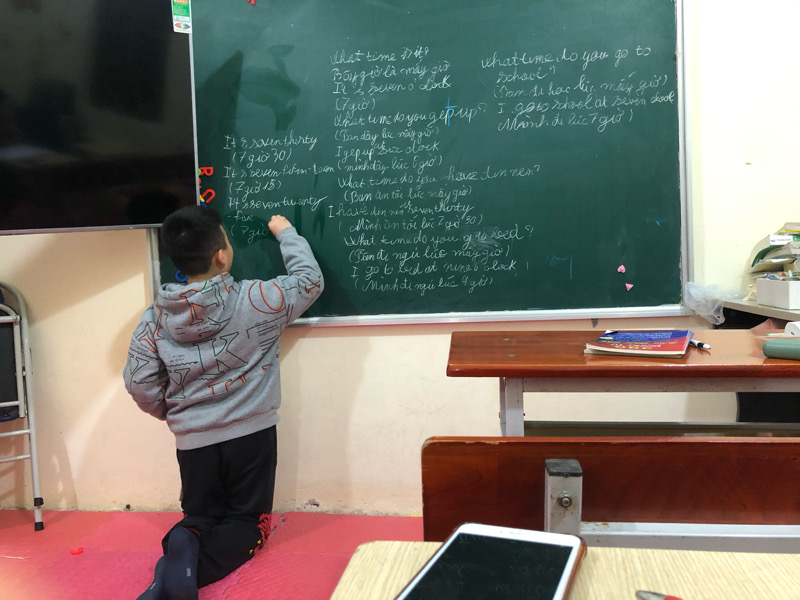 It's seven thirty
(7 giờ 30)
It's seven
(7 giờ 15)
It's seven twenty
- five
(7 giờ
What time is it?
Bây giờ là mấy giờ
It's seven o'clock
(7 giờ)
What time do you gep up?
(Bạn dậy lúc mấy giờ)
I gep up six o'clock
(mình dậy lúc 6 giờ)
What time do you have dinnen?
(Bạn ăn tối lúc mấy giờ)
I have dinnen seventhirty
(Mình ăn tối lúc 7 giờ 30)
What time do you go to bed?
(Bạn đi ngủ lúc mấy giờ)
I go to bed at nine o'clock
(Mình đi ngủ lúc 9 giờ)
What time do you go to
school?
(Bạn đi học lúc mấy giờ)
I go to school at seven
(Mình đi lúc 7 giờ)